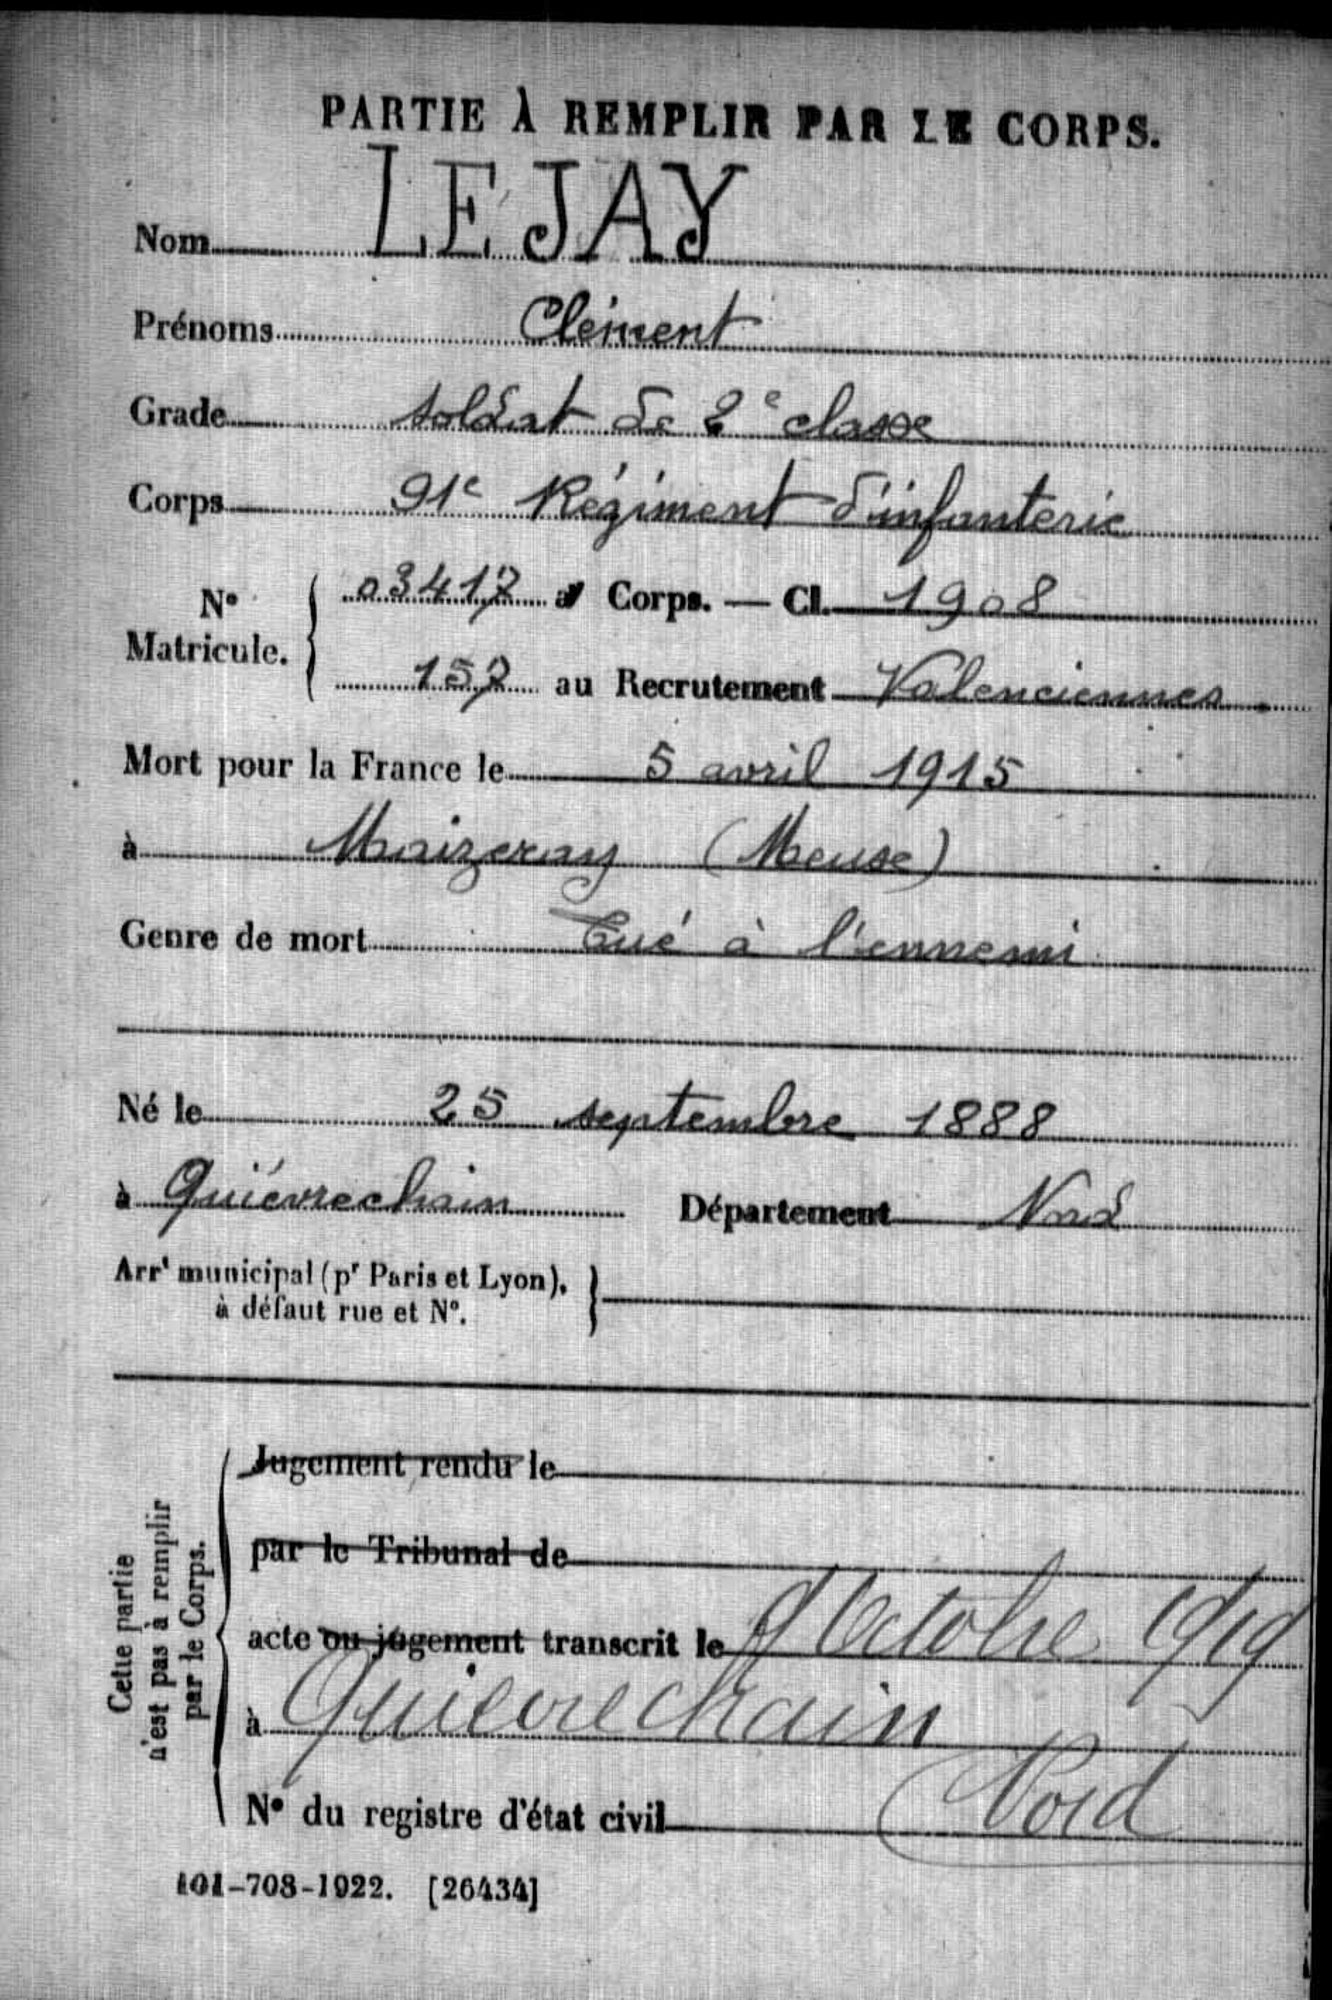 PARTIE À REMPLIR PAR LE CORPS.
Nom LEJAY
Prénoms Clément
Grade soldat de 2e classe
Corps 91e Régiment d'infanterie
N° Matricule. 03417 au Corps. — Cl. 1908
157 au Recrutement Valenciennes.
Mort pour la France le 5 avril 1915
à Maizeray (Meuse)
Genre de mort Tué à l'ennemi
Né le 25 septembre 1888
à Quiévrechain Département Nord
Arrt municipal (pr Paris et Lyon),
à défaut rue et N°.
Cette partie
n'est pas à remplir
par le Corps.
Jugement rendu le
par le Tribunal de
acte ou jugement transcrit le 9 Octobre 1919
à Quievrechain
Nord
N° du registre d'état civil
101-708-1922. [26434]